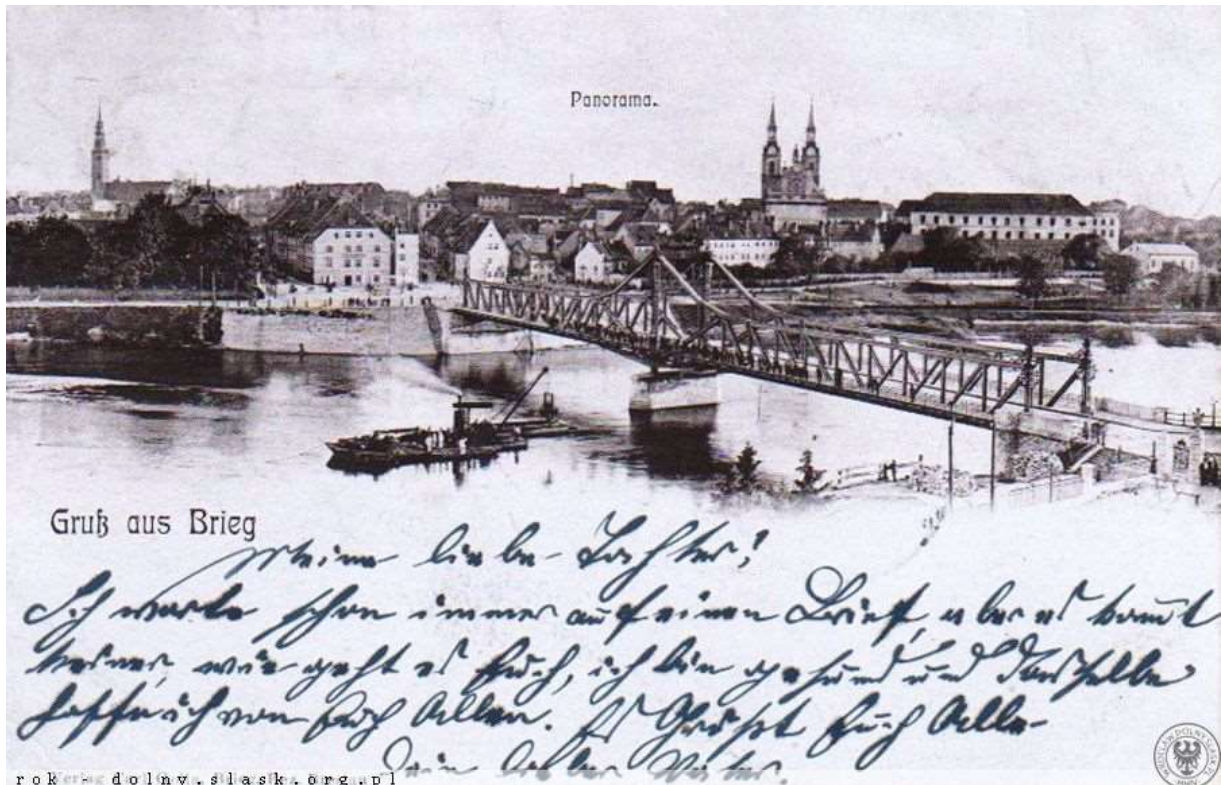 Panorama.
Gruß aus Brieg
Meine liebe Tochter!
Ich warte schon immer auf einen Brief, aber es kommt
keiner, wie geht es Euch, ich bin gesund und dasselbe
hoffe ich von Euch Allen. Es Grüßt Euch Alle
Dein lieber Vater.
rok - dolny.slask.org.pl